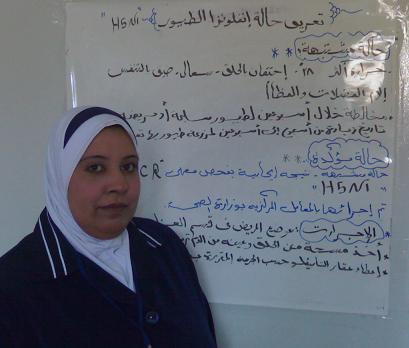 تعريف حالة إنفلونزا الطيور "H5N1"
حالة مشتبهة: **
حرارة > ٣٨ْ - إحتقان الحلق - سعال - ضيق التنفس
الم العضلات والعظام
مخالطة خلال أسبوعين لطيور سابقة أو مريضة
تاريخ زيارة من أسبوع إلى أسبوعين لمزرعة طيور بها
حالة مؤكدة: **
حالة مشتبهة - نتيجة إيجابية بفحص معملى "CR
"H5N1"
تم إجرائها بالمعامل المركزية بوزارة الصحة
الإجراءات: يوضع المريض فى قسم العزل
* أخذ مسحة من الحلق وعينة من الدم
* إعطاء عقار التاميفلو حسب الجرعة المقررة